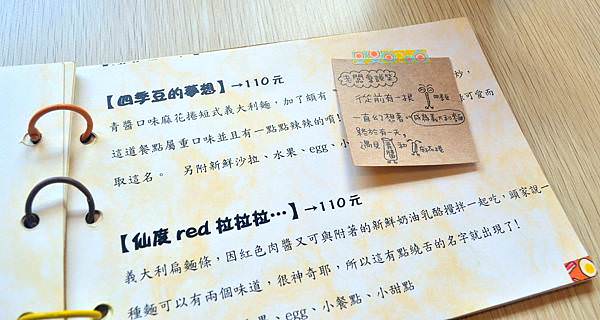 【四季豆的夢想】→110元
青醬口味麻花捲短式義大利麵，加了頗有
這道餐點屬重口味並且有一點點辣辣的唷!
取這名。 另附新鮮沙拉、水果、egg、小
秒，
可愛而
從前有一根
一直幻想著
成為義大利麵
終於有一天，
遇見 和
【仙度red拉拉拉…】→110元
義大利扁麵條，因紅色肉醬又可與附著的新鮮奶油乳酪攪拌一起吃，頭家說一
種麵可以有兩個味道，很神奇耶，所以這有點繞舌的名字就出現了!
果、egg、小餐點、小甜點